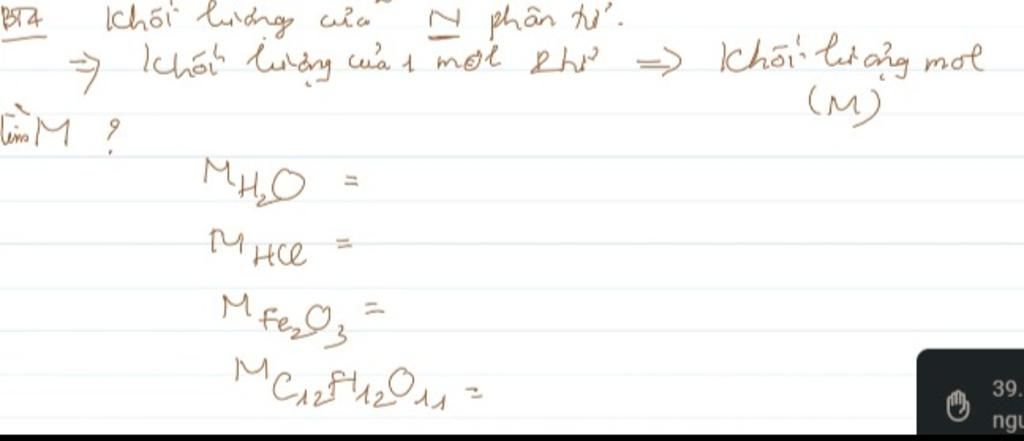 BT4 Khối lượng của N phân tử.
⇒ Khối lượng của 1 mol phtử ⇒ Khối lượng mol
(M)
Tìm M ?
M H₂O =
M HCl =
M Fe₂O₃ =
M C₁₂H₁₂O₁₁ =
39.
ngu